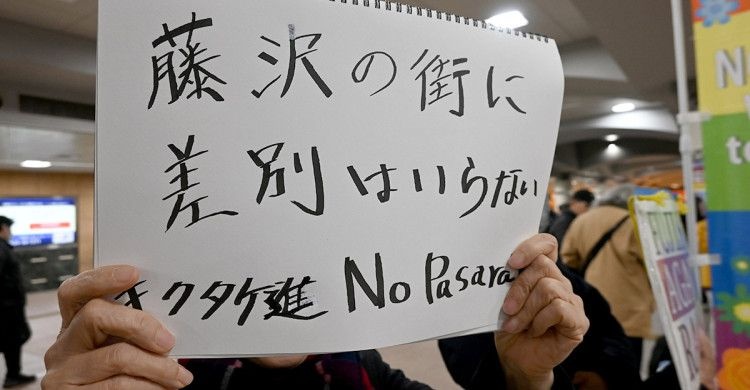 藤沢の街に
差別はいらない
キクタケ進 No Pasara
N
t